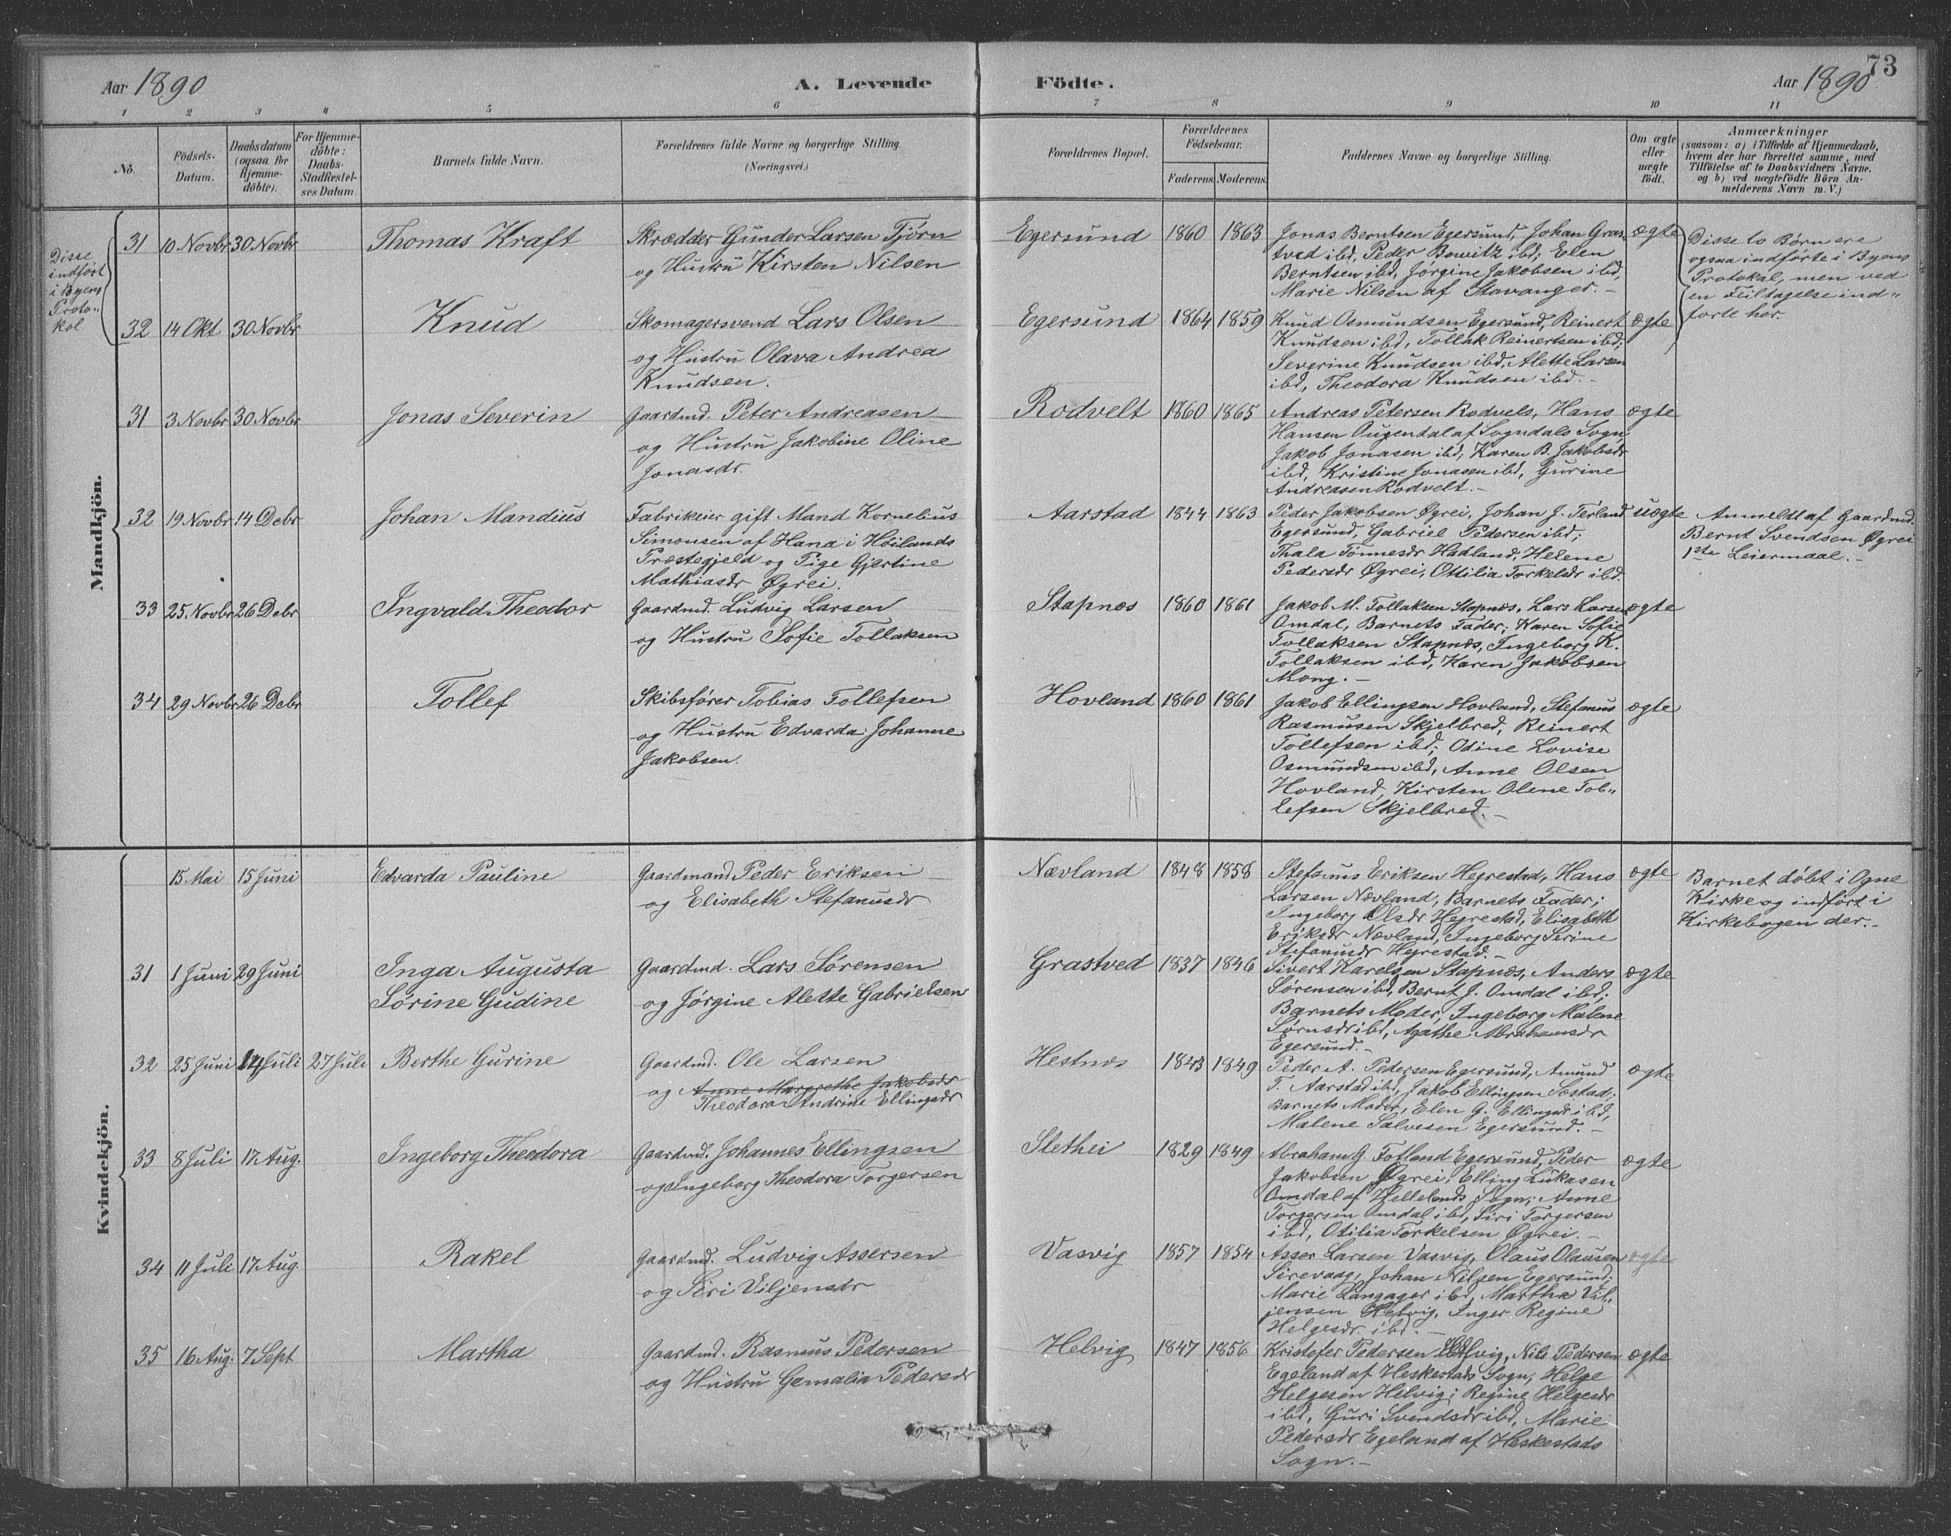 Aar 1890
A. Levende
Födte.
Aar 1890
73
1 2 3 4 5 6 7 8 9 10 11
No.
Födsels-
Datum.
Daabsdatum
(ogsaa for
Hjemme-
döbte).
For Hjemme-
döbte:
Daabs-
Stadfæstel-
ses Datum.
Barnets fulde Navn.
Forældrenes fulde Navne og borgerlige Stilling.
(Næringsvei.)
Forældrenes Bopæl.
Forældrenes
Födselsaar.
Faderens. Moderens.
Faddernes Navne og borgerlige Stilling.
Om ægte
eller
uægte
födt.
Anmærkninger
(saasom: a) i Tilfælde af Hjemmedaab,
hvem der har forrettet samme, med
Tilföielse af to Daabsvidners Navne.
og b) ved uægtefödte Börn An-
melderens Navn m. V.)
Mandkjön.
Disse
indført
i Byens
Proto-
kol
31 10 Novbr 30 Novbr Thomas Kraft
Skrædder Gunder Larsen Tjörn
og Hustru Kirsten Nilsen
Egersund 1860 1863
Jonas Berntsen Egersund, Johan Gras-
tved ibd, Peder Bowitz ibd; Elen
Berntsen ibd, Jørgine Jakobsen ibd,
Marie Nilsen af Stavanger.-
ægte
Disse to Børn ere
ogsaa indførte i Byens
Protokal, men ved
en Feiltagelse ind-
førte her.
32 14 Okt 30 Novbr Knud
Skomagersvend Lars Olsen
og Hustru Olava Andrea
Knudsen.
Egersund 1864 1859
Knud Osmundsen Egersund, Reinert
Knudsen ibd, Tollak Reinertsen ibd;
Severine Knudsen ibd, Alette Larsen
ibd, Theodora Knudsen ibd.-
ægte
31 3 Novbr 30 Novbr Jonas Severin
Gaardmd. Peter Andreasen
og Hustru Jakobine Oline
Jonasdr.
Rodvelt 1860 1865
Andreas Petersen Rodvelt, Hans
Hansen Ougendal af Sogndals Sogn,
Jakob Jonasen ibd; Karen B. Jakobsdr
ibd, Kristine Jonasen ibd, Gurine
Andreasen Rodvelt.-
ægte
32 19 Novbr 14 Debr Johan Mandius
Fabrikeier gift Mand Kornelius
Simonsen af Hana i Høilands
Præstegjeld og Pige Gjertine
Mathiasdr Øgrei.
Aarstad 1844 1863
Peder Jakobsen Øgrei, Johan J. Terland
Egersund, Gabriel Pedersen ibd;
Thala Tønnesdr Hadland, Helene
Pedersdr Øgrei, Ottilia Torkelsdr ibd.
uægte
Anmeldt af Gaardmd.
Bernt Svendsen Øgrei
1ste Leiermaal.-
33 25 Novbr 26 Debr Ingvald Theodor
Gaardmd. Ludvig Larsen
og Hustru Sofie Tollaksen
Stapnæs 1860 1861
Jakob M. Tollaksen Stapnæs, Lars Larsen
Omdal, Barnets Fader; Karen Sofie
Tollaksen Stapnæs, Ingeborg K.
Tollaksen ibd, Karen Jakobsen
Mong.-
ægte
34 29 Novbr 26 Debr Tollef
Skibsfører Tobias Tollefsen
og Hustru Edvarda Johanne
Jakobsen.
Hovland 1860 1861
Jakob Ellingsen Hovland, Stefanus
Rasmusen Skjelbred, Reinert
Tollefsen ibd; Odine Lovise
Osmundsen ibd, Anne Olsen
Hovland, Kirsten Olene Tol-
lefsen Skjelbred.-
ægte
Kvindekjön.
15 Mai 15 Juni Edvarda Pauline
Gaardmand Peder Eriksen
og Elisabeth Stefanusdr
Nævland 1848 1858
Stefanus Eriksen Hegrestad, Hans
Larsen Nævland, Barnets Fader;
Ingeborg Olsdr Hegrestad, Elisabeth
Eriksdr Nævland, Ingeborg Serine
Stefanusdr Hegrestad.-
ægte
Barnet døbt i Ogne
Kirke og indført i
Kirkebogen der.-
31 1 Juni 29 Juni Inga Augusta
Sørine Gudine
Gaardmd. Lars Sørensen
og Jørgine Alette Gabrielsen
Grastved 1837 1846
Sivert Karelsen Stapnæs, Anders
Sørensen ibd, Bernt J. Omdal ibd;
Barnets Moder, Ingeborg Malene
Sørnsdr ibd, Agathe Abrahamsdr
Egersund.-
ægte
32 25 Juni 14 Juli 27 Juli Berthe Gurine
Gaardmd. Ole Larsen
og Anne Margrethe Jakobsdr
Theodora Andrine Ellingsdr
Hestnæs 1843 1849
Peder A. Pedersen Egersund, Amund
T. Aarstad ibd, Jakob Ellingsen Sostad;
Barnets Moder, Elen G. Ellingsdr ibd,
Malene Salvesen Egersund.-
ægte
33 8 Juli 17 Aug. Ingeborg Theodora
Gaardmd. Johannes Ellingsen
og Ingeborg Theodora Torgersen
Slethei 1829 1849
Abraham G. Fotland Egersund, Peder
Jakobsen Øgrei, Elling Lukasen
Omdal af Hellelands Sogn; Anne
Torgersen Omdal ibd, Siri Torgersen
ibd, Otilia Torkelsen Øgrei.-
ægte
34 11 Juli 17 Aug. Rakel
Gaardmd. Ludvig Assersen
og Siri Viljensdr
Vasvig 1857 1854
Asser Larsen Vasvig, Olaus Olausen
Sirevaag, Johan Nilsen Egersund;
Marie Langager ibd, Martha Vil-
jensen Helvig, Inger Regine
Helgesdr ibd.-
ægte
35 16 Aug. 7 Sept Martha
Gaardmd. Rasmus Pedersen
og Hustru Gemalia Pedersdr
Helvig 1847 1856
Kristofer Pedersen Helvig, Nils Pedersen
Egeland af Heskestads Sogn, Helge
Helgesen Helvig; Regine Helgesdr
ibd, Guri Svendsdr ibd, Marie
Pedersdr Egeland af Heskestads
Sogn.-
ægte